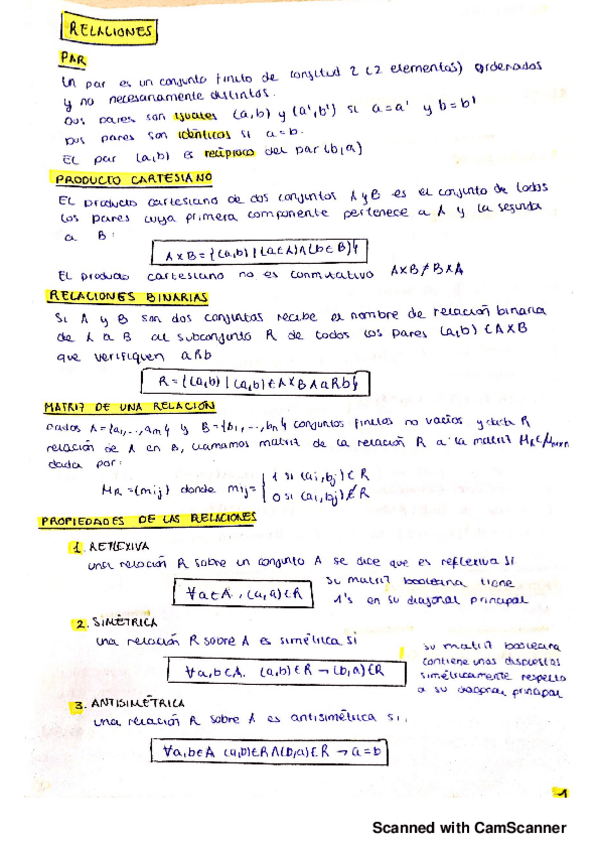 RELACIONES
PAR
Un par es un conjunto finito de longitud 2 (2 elementos) ordenados
y no necesariamente distintos.
Dos pares son iguales (a,b) y (a',b') si a=a' y b=b'
Dos pares son idénticos si a=b.
El par (a,b) es recíproco del par (b,a)
PRODUCTO CARTESIANO
El producto cartesiano de dos conjuntos A y B es el conjunto de todos
los pares cuya primera componente pertenece a A y la segunda
a B:
A×B={(a,b) | (a∈A)∧(b∈B)}
El producto cartesiano no es conmutativo A×B≠B×A
RELACIONES BINARIAS
Si A y B son dos conjuntos recibe el nombre de relación binaria
de A a B al subconjunto R de todos los pares (a,b) ∈ A×B
que verifiquen aRb
R={(a,b) | (a,b)∈A×B∧aRb}
MATRIZ DE UNA RELACIÓN
Dados A={a1,...,am} y B={b1,...,bn} conjuntos finitos no vacíos y dada R
relación de A en B, llamamos matriz de la relación R a la matriz MR∈Mmxn
dada por:
MR=(mij) donde mij= { 1 si (ai,bj)∈R
0 si (ai,bj)∉R
PROPIEDADES DE LAS RELACIONES
1. REFLEXIVA
una relación R sobre un conjunto A se dice que es reflexiva si
∀a∈A, (a,a)∈R
su matriz booleana tiene
1's en su diagonal principal
2. SIMÉTRICA
una relación R sobre A es simétrica si
∀a,b∈A. (a,b)∈R → (b,a)∈R
su matriz booleana
contiene unos dispuestos
simétricamente respecto
a su diagonal principal
3. ANTISIMÉTRICA
una relación R sobre A es antisimétrica si,
∀a,b∈A (a,b)∈R∧(b,a)∈R → a=b
1
Scanned with CamScanner